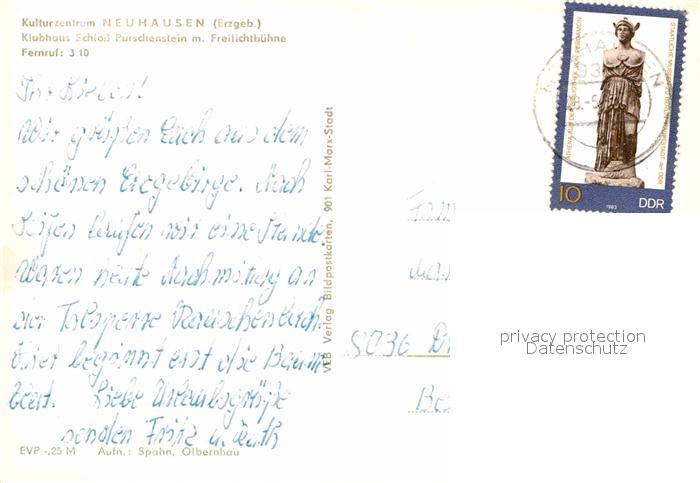 Kulturzentrum NEUHAUSEN (Erzgeb.)
Klubhaus Schloß Purschenstein m. Freilichtbühne
Fernruf: 3 10
Ihr Lieben!
Wir grüßen Euch aus dem
schönen Erzgebirge. Nach
Seifen laufen wir eine Stunde.
Waren heute Nachmittag an
der Talsperre Rauschenbach.
Hier beginnt erst die Baum
blüt. Liebe Urlaubsgrüße
senden Fritz u. Ruth
EVP -,25 M Aufn.: Spahn, Olbernhau
VEB Verlag Bildpostkarten, 901 Karl-Marx-Stadt
ATHENA AUS DER BIBLIOTHEK VON PERGAMON
STAATLICHE MUSEEN ZU BERLIN HAUPTSTADT der DDR
10
1983
DDR
Fam
8036 Dr
privacy protection
Datenschutz